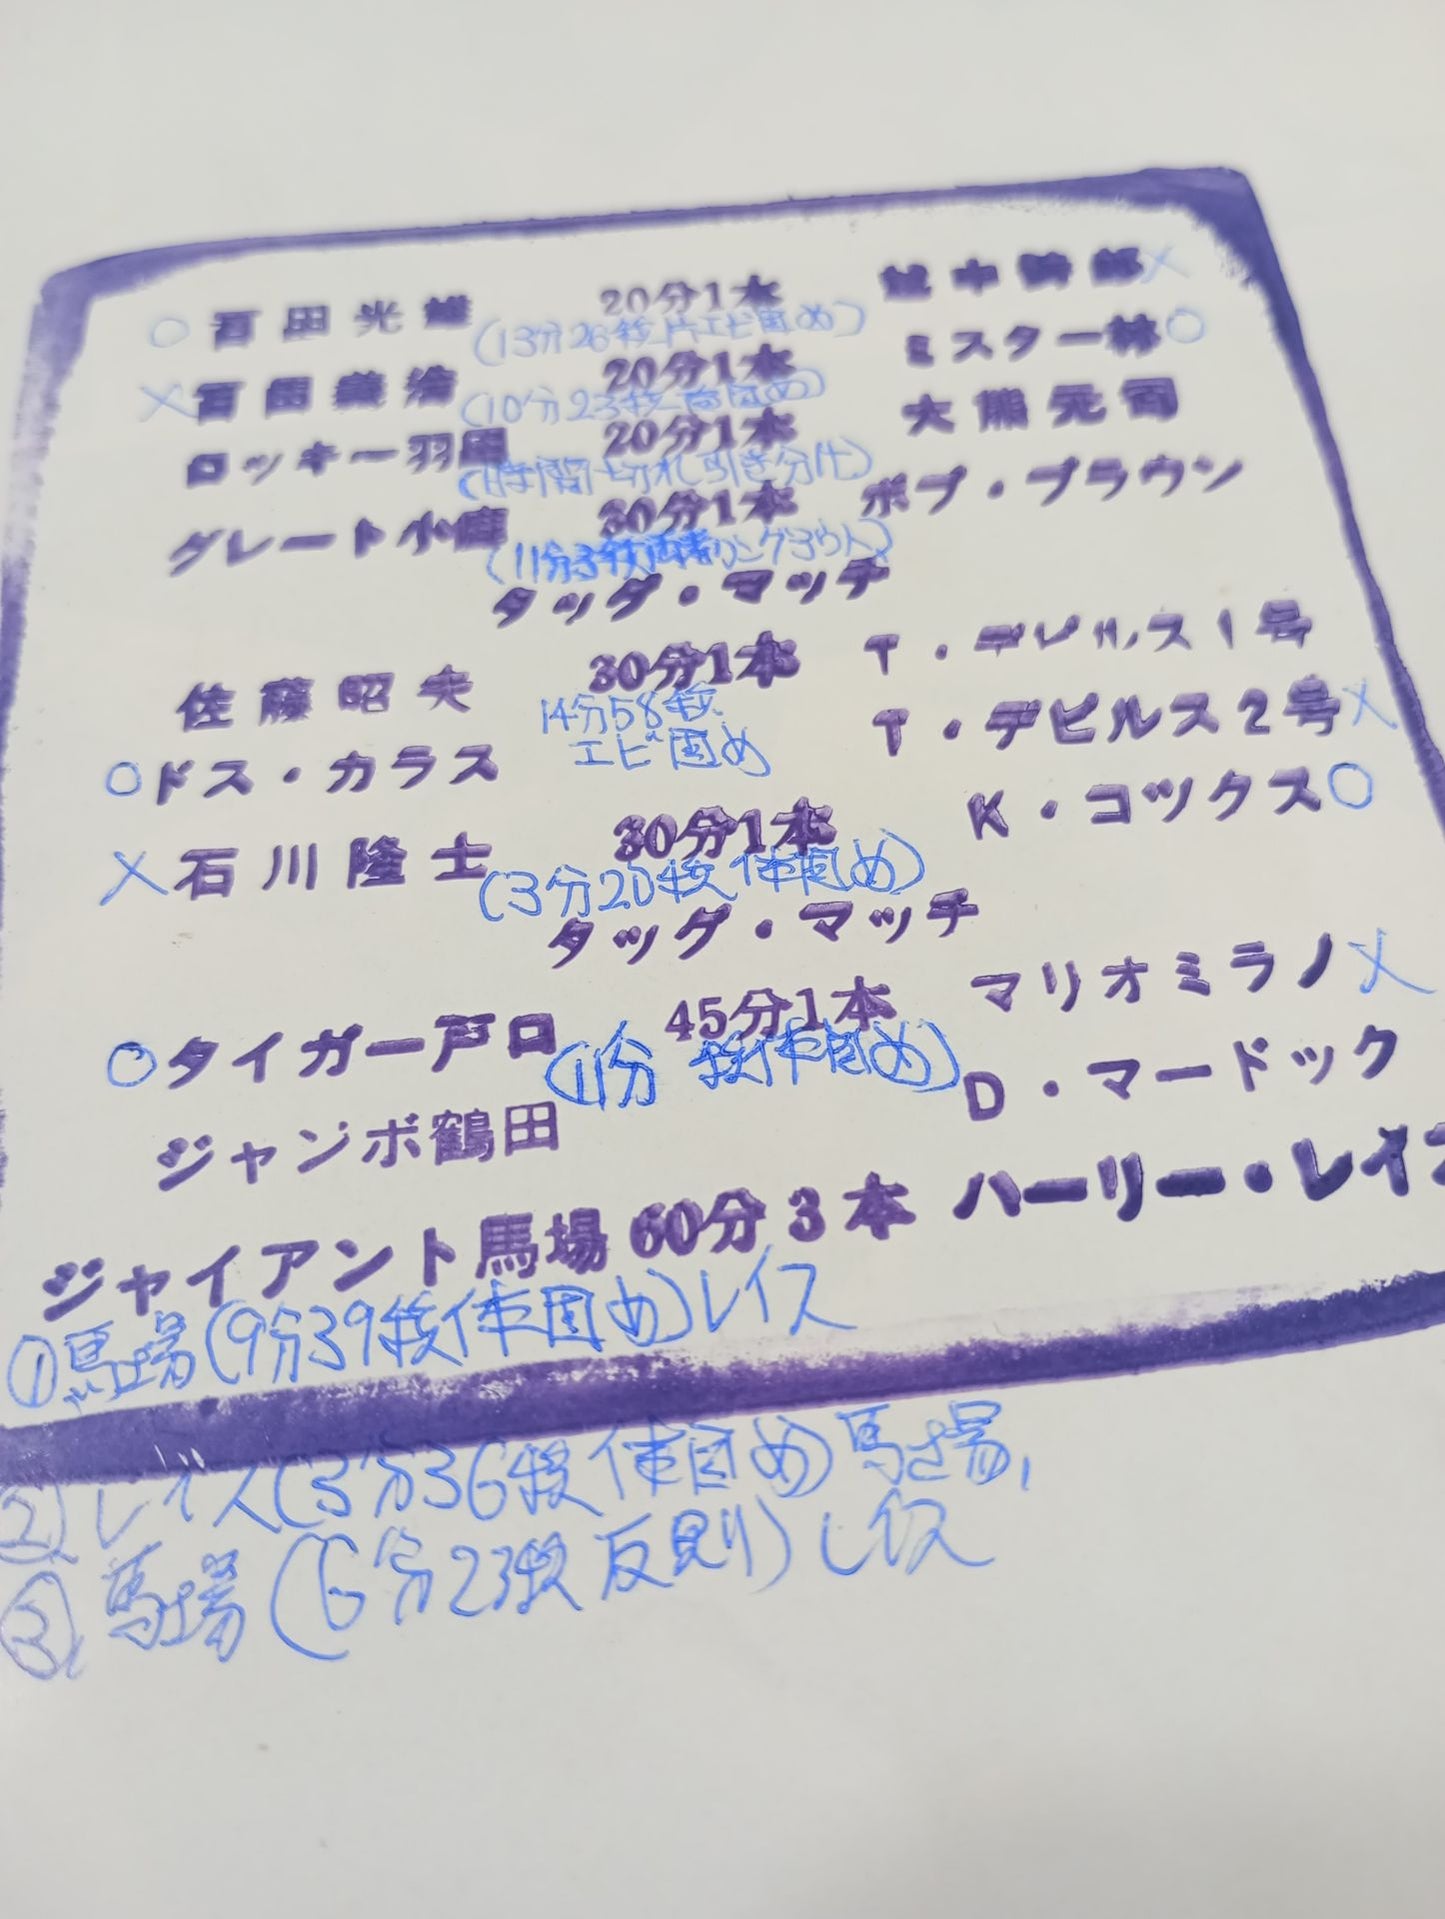 ○百田光雄 20分1本 越中詩郎×
(13分26秒片エビ固め)
×百田義浩 20分1本 ミスター林○
(10分23秒 固め)
ロッキー羽田 20分1本 大熊元司
(時間切れ引き分け)
グレート小鹿 30分1本 ボブ・ブラウン
(11分3秒両者リングアウト)
タッグ・マッチ
佐藤昭夫 30分1本 T・デビルス1号
14分58秒
○ドス・カラス エビ固め T・デビルス2号×
×石川隆士 30分1本 K・コックス○
(3分20秒体固め)
タッグ・マッチ
○タイガー戸口 45分1本 マリオミラノ×
(11分 秒体固め)
ジャンボ鶴田 D・マードック
ジャイアント馬場 60分3本 ハーリー・レイス
①馬場(9分39秒体固め)レイス
②レイス(3分36秒体固め)馬場
③馬場(6分23秒反則)レイス